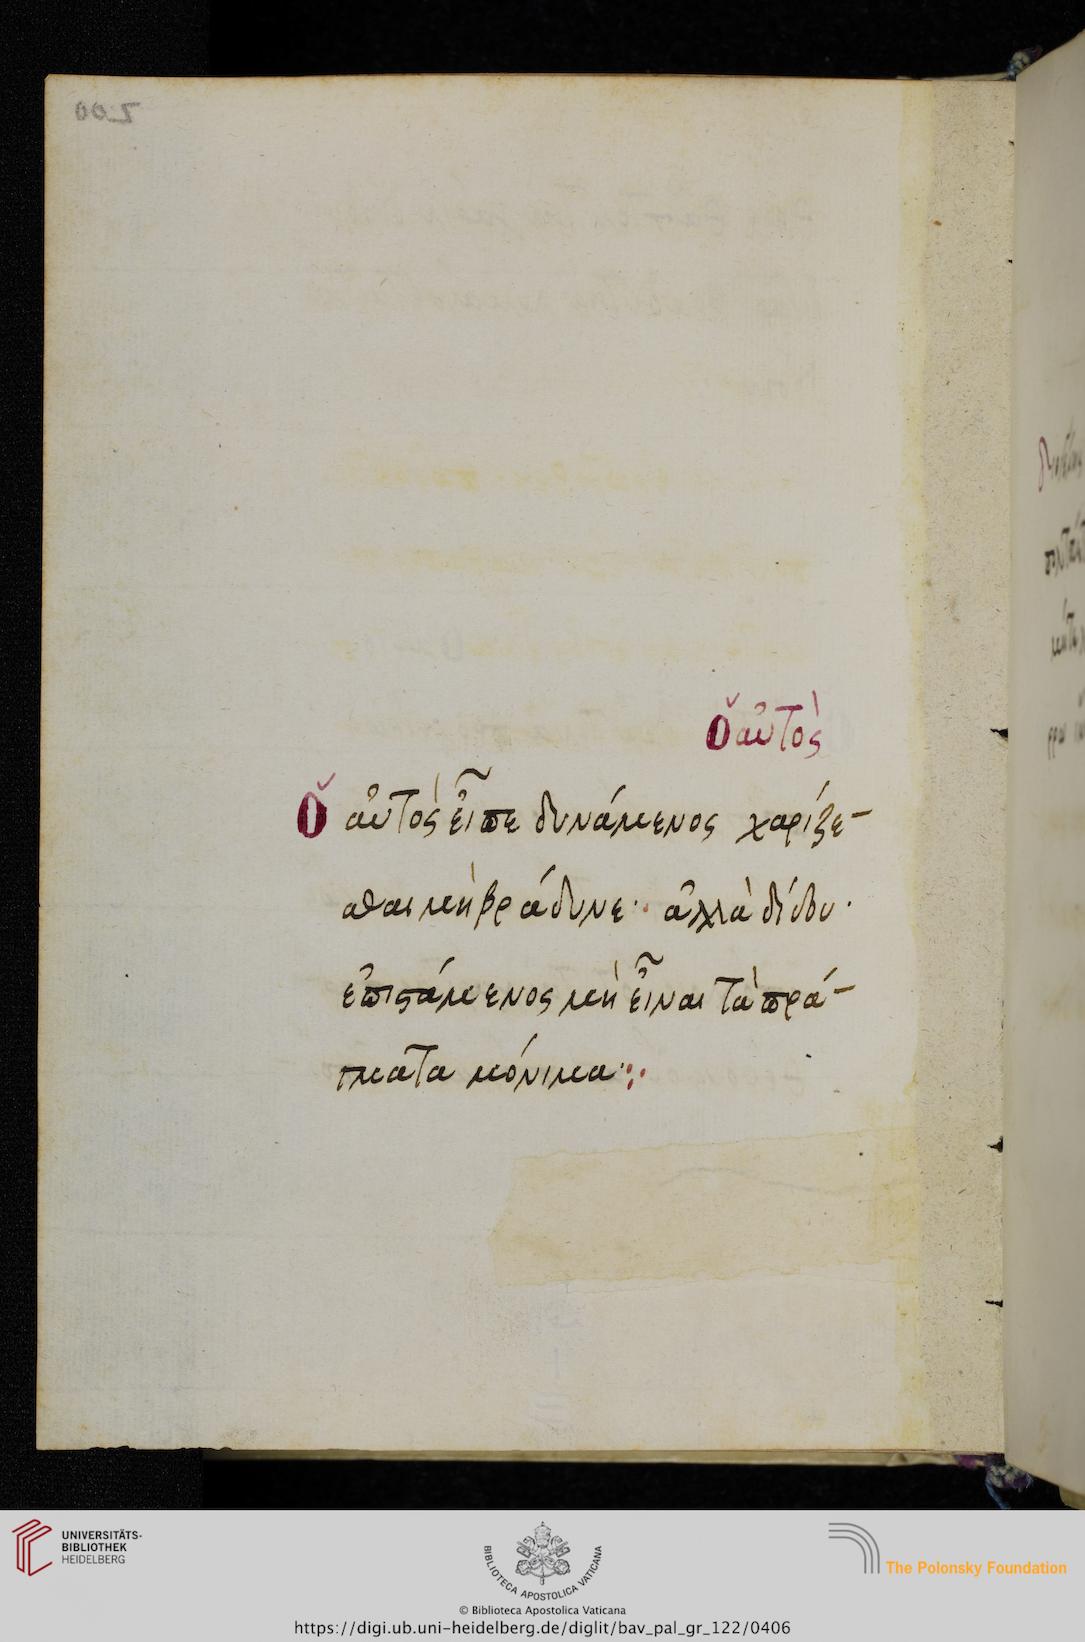 ὁ αὐτὸς
ὁ αὐτὸς εἶπε δυνάμενος χαρίζε-
σθαι μὴ βράδυνε· ἀλλὰ δίδου·
ἐπιστάμενος μὴ εἶναι τὰ πρά-
γματα μόνιμα:
UNIVERSITÄTS-
BIBLIOTHEK
HEIDELBERG
BIBLIOTECA APOSTOLICA VATICANA
The Polonsky Foundation
© Biblioteca Apostolica Vaticana
https://digi.ub.uni-heidelberg.de/diglit/bav_pal_gr_122/0406